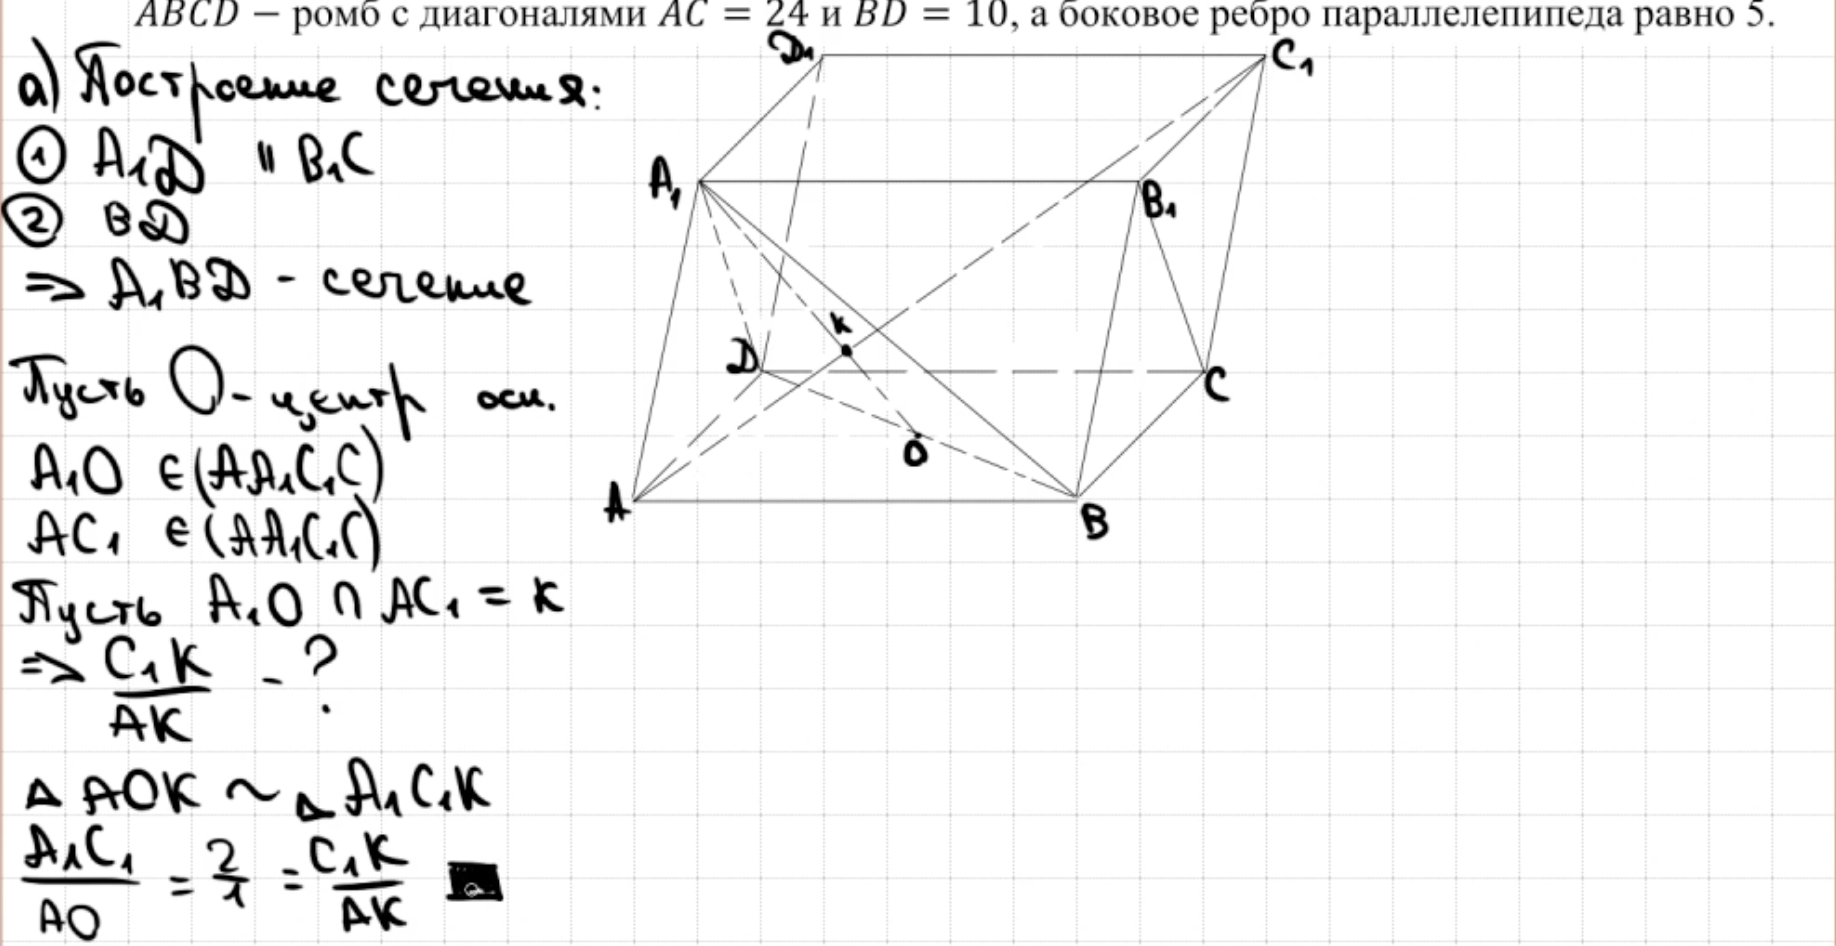 ABCD – ромб с диагоналями AC = 24 и BD = 10, а боковое ребро параллелепипеда равно 5.
а) Построение сечения:
① A₁D ∥ B₁C
② BD
⇒ A₁BD - сечение
Пусть O - центр осн.
A₁O ∈ (AA₁C₁C)
AC₁ ∈ (AA₁C₁C)
Пусть A₁O ∩ AC₁ = K
⇒ C₁K / AK - ?
△ AOK ~ △ A₁C₁K
A₁C₁ / AO = 2/1 = C₁K / AK ■
D₁
C₁
A₁
B₁
K
D
C
O
A
B